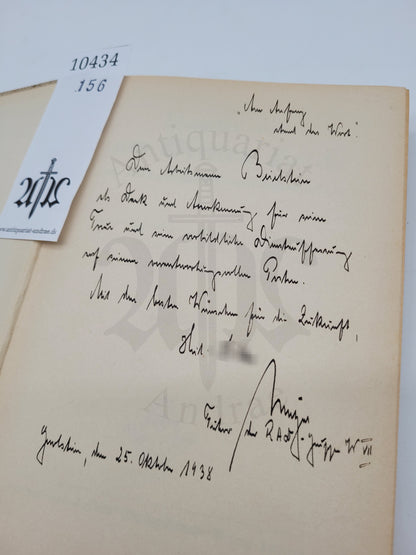 10434
156
www.antiquariat-andrae.de
Antiquariat
Andrae
„Am Anfang
stand das Wort".
Dem Arbeitsmann Beielstein
als Dank und Anerkennung für seine
Treue und seine vorbildliche Dienstauffassung
auf seinem verantwortungsvollen Posten.
Mit den besten Wünschen für die Zukunft,
Heil
Führer der RADwJ-Gruppe W VII
Gerolstein, den 25. Oktober 1938